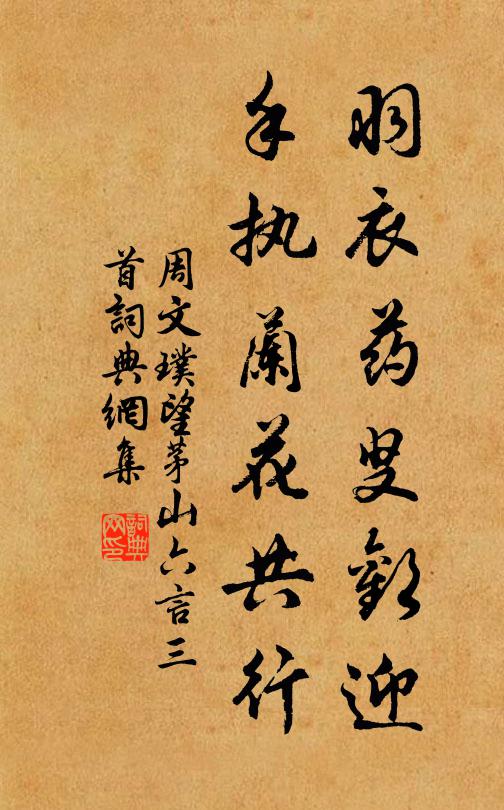 羽衣药叟欢迎
手执兰花共行
周文璞望茅山六言三
首词典网集
詞典网印